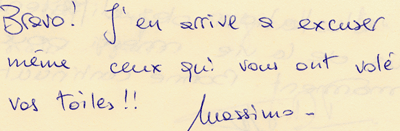 Bravo! J'en arrive a excuser
même ceux qui vous ont volé
vos toiles!!  Massimo -